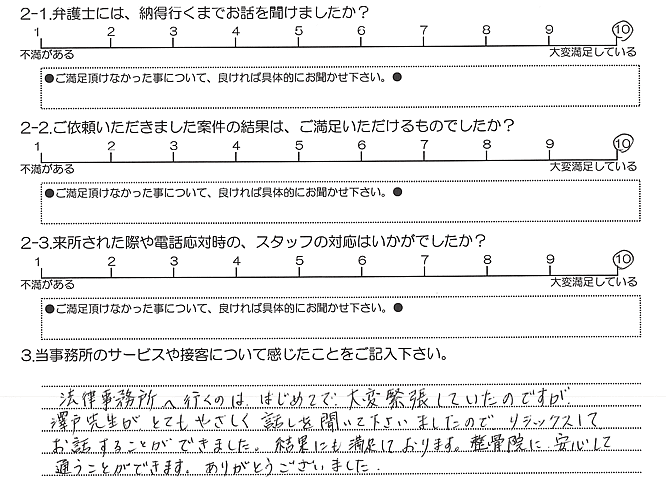 2-1.弁護士には、納得行くまでお話を聞けましたか？
1 2 3 4 5 6 7 8 9 10
不満がある 大変満足している
●ご満足頂けなかった事について、良ければ具体的にお聞かせ下さい。●
2-2.ご依頼いただきました案件の結果は、ご満足いただけるものでしたか？
1 2 3 4 5 6 7 8 9 10
不満がある 大変満足している
●ご満足頂けなかった事について、良ければ具体的にお聞かせ下さい。●
2-3.来所された際や電話応対時の、スタッフの対応はいかがでしたか？
1 2 3 4 5 6 7 8 9 10
不満がある 大変満足している
●ご満足頂けなかった事について、良ければ具体的にお聞かせ下さい。●
3.当事務所のサービスや接客について感じたことをご記入下さい。
法律事務所へ行くのは、はじめてで、大変緊張していたのですが
澤戸先生がとてもやさしく話しを聞いて下さいましたので リラックスして
お話することができました。結果にも満足しております。整骨院に、安心して
通うことができます。ありがとうございました。